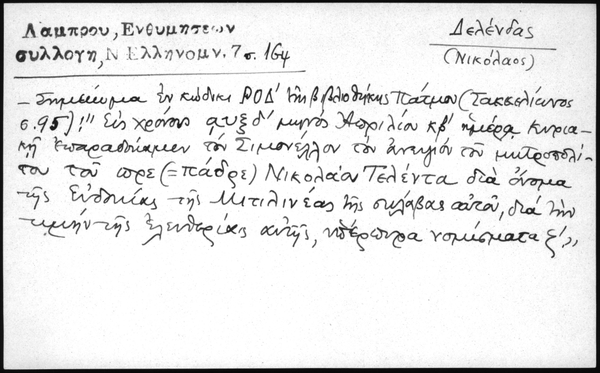 Λαμπρου, Ενθυμησεων
Δελένδας
συλλογη, Ν Ελληνομν. 7 σ. 164
(Νικόλαος)
— Σημείωμα ἐν κώδικι ΡΟΔ' τῆς βιβλιοθήκης Πάτμου (Σακκελίωνος
σ. 95) : " Εἰς χρόνους αυξδ' μηνός Ἀπριλίου κβ' ἡμέρᾳ κυρια-
κῇ ἐπαραδώκαμεν τὸν Σιμονέλλον τὸν ἀνεψιόν τοῦ μητροπολί-
του τοῦ πρε (=πάδρε) Νικολάου Τελέντα διὰ ὄνομα
τῆς Εὐδοκίας τῆς Μιτιλινέας τῆς σκλάβας αὐτοῦ, διά τὴν
τιμήν τῆς ἐλευθερίας αὐτῆς, ὑπέρπυρα νομίσματα ξ',,